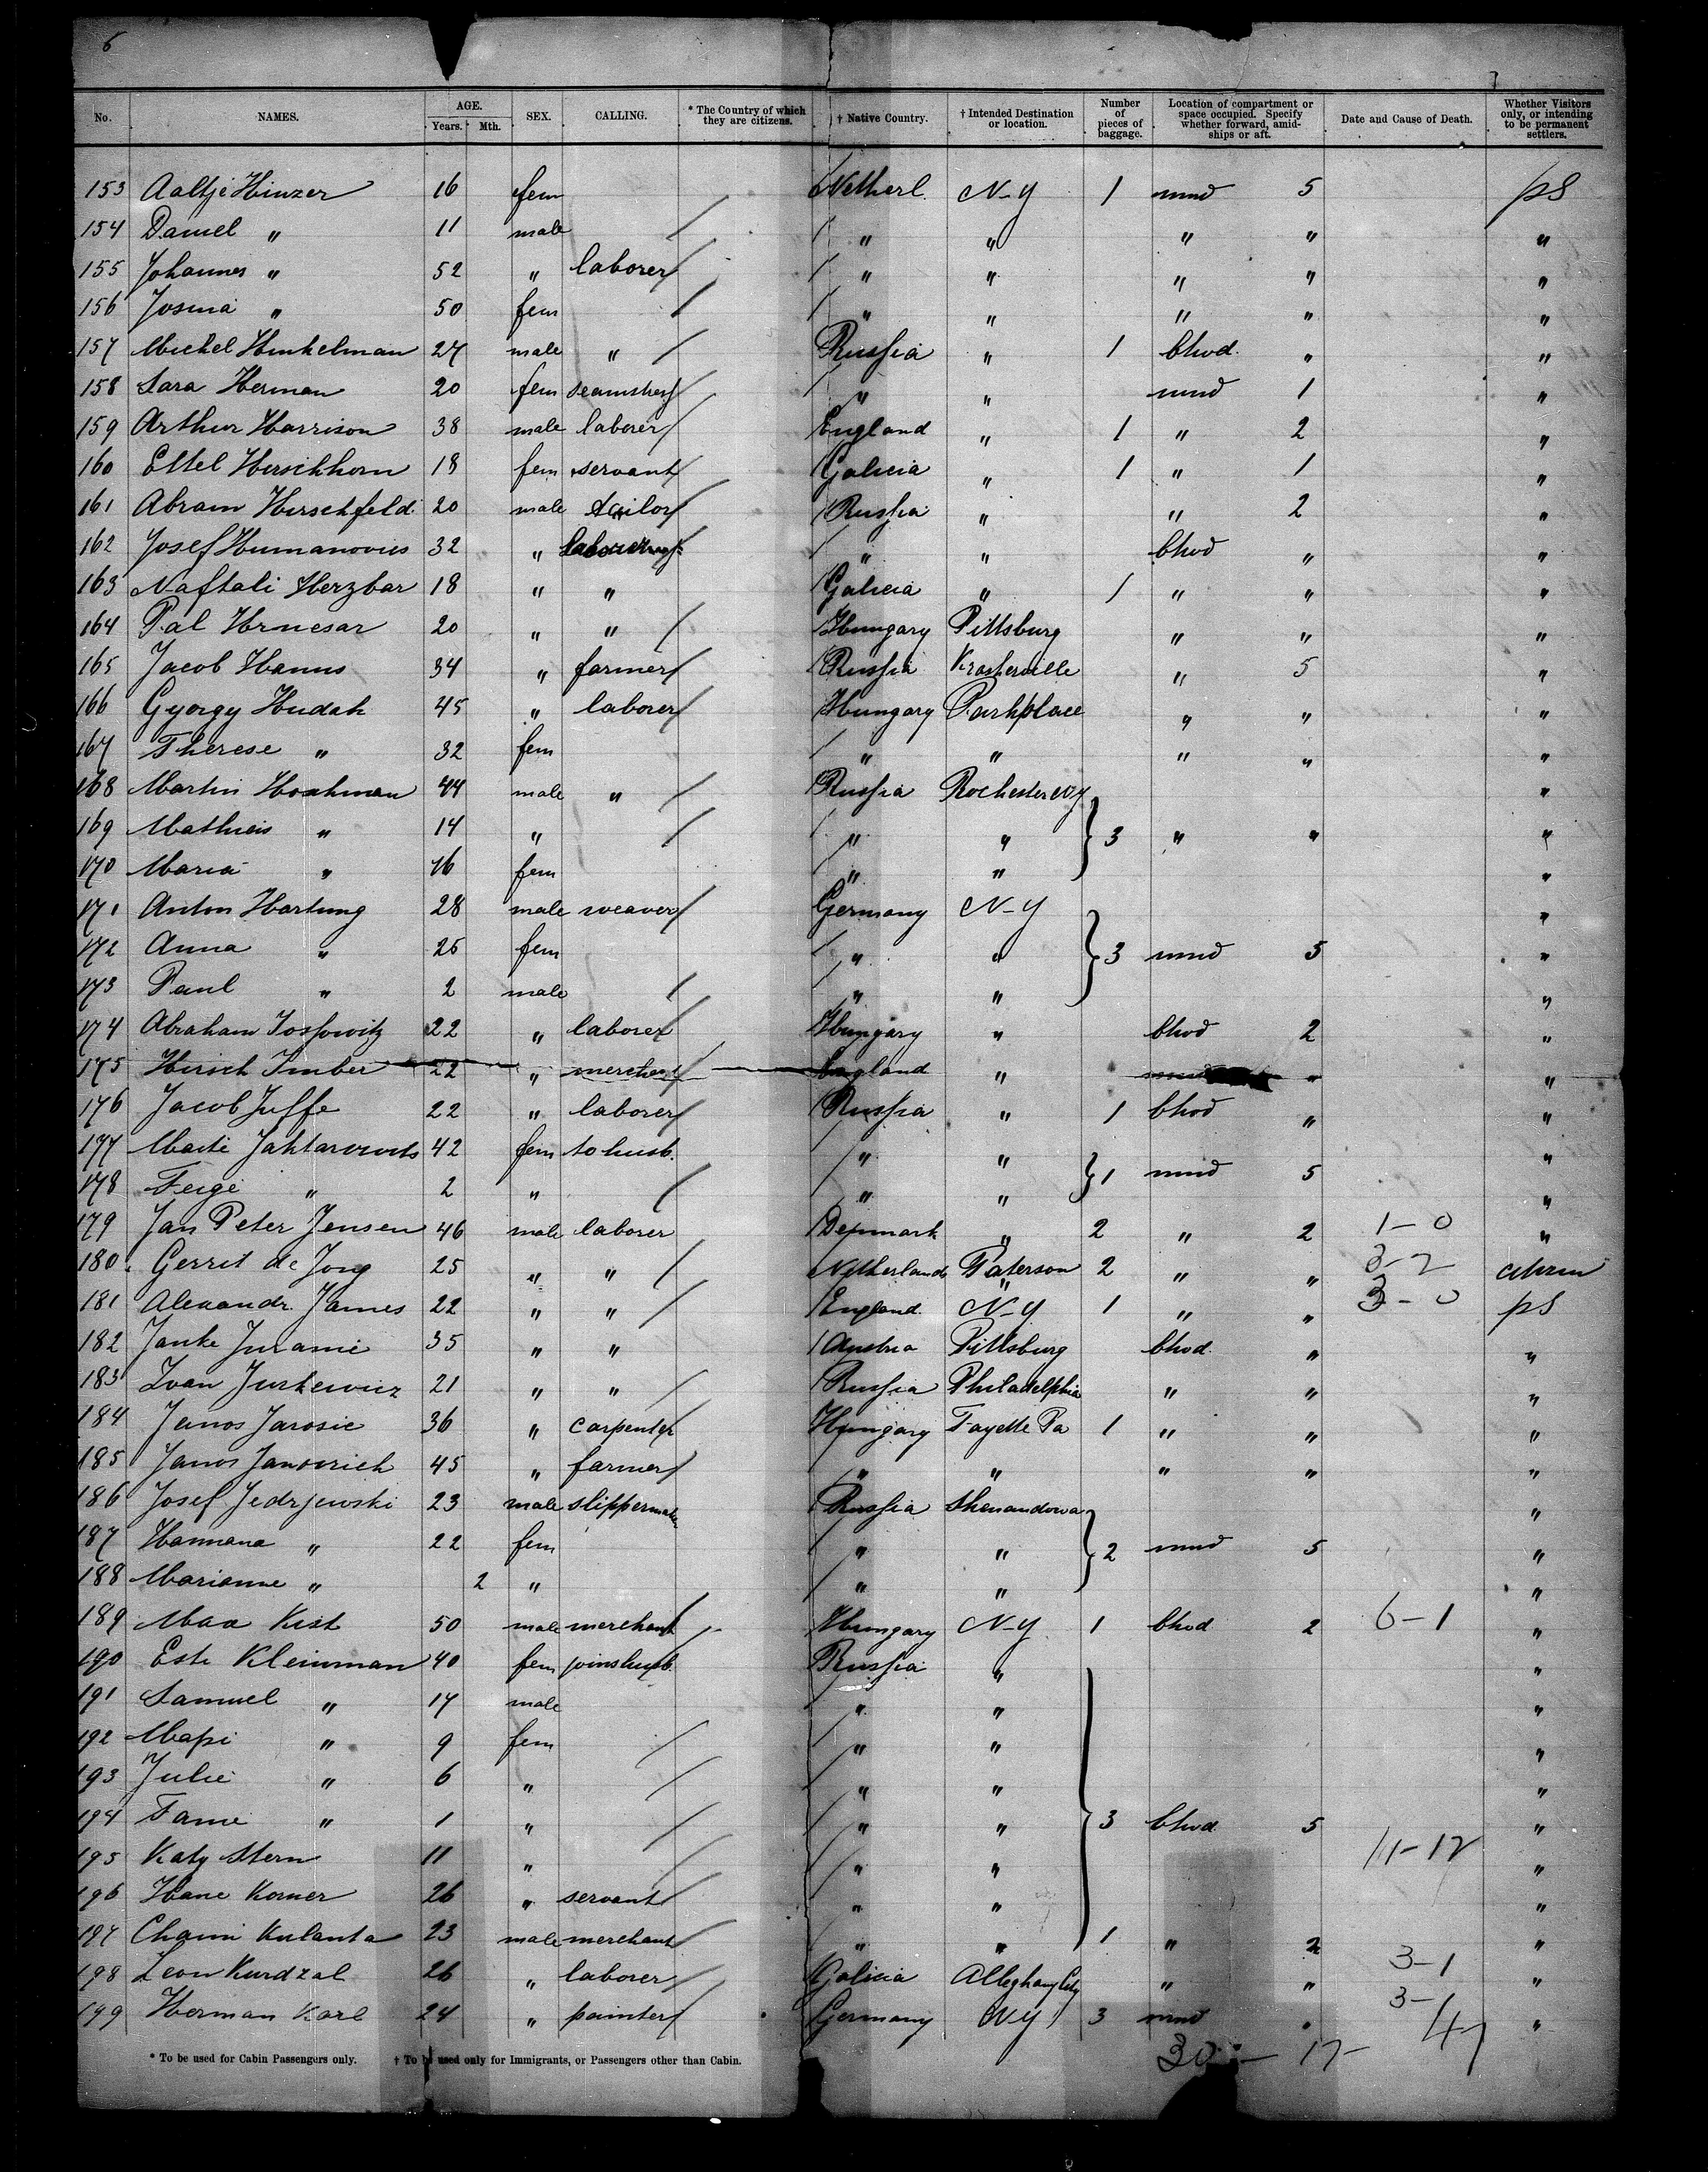 6
7
No. NAMES. AGE. Years. Mth. SEX. CALLING. * The Country of which they are citizens. † Native Country. † Intended Destination or location. Number of pieces of baggage. Location of compartment or space occupied. Specify whether forward, amidships or aft. Date and Cause of Death. Whether Visitors only, or intending to be permanent settlers.
153 Aaltje Hinzer 16 fem Netherl. N-Y 1 mnd 5 ps
154 Daniel " 11 male " " " " "
155 Johannes " 52 " laborer " " " " "
156 Josina " 50 fem " " " " "
157 Michel Hinkelman 27 male " Russia " 1 bhvd. " "
158 Sara Herman 20 fem seamstress " " mnd 1 "
159 Arthur Harrison 38 male laborer England " 1 " 2 "
160 Ettel Hirschhorn 18 fem servant Galicia " 1 " 1 "
161 Abram Hirschfeld 20 male tailor Russia " " 2 "
162 Josef Humanovics 32 " " " bhvd " "
163 Naftali Herzbar 18 " " Galicia " 1 " " "
164 Pal Hrncsar 20 " " Hungary Pittsburg " " "
165 Jacob Hanus 34 " farmer Russia " 5 "
166 Gyorgy Hudak 45 " laborer Hungary Parkplace " " "
167 Therese " 32 fem " " " " "
168 Martin Hoahman 44 male " Russia Rochester NY "
169 Mathias " 14 " " " 3 " " "
170 Maria " 16 fem " " "
171 Anton Hartung 28 male weaver Germany N-Y "
172 Anna " 25 fem " " 3 mnd 5 "
173 Paul " 2 male " " "
174 Abraham Jossowitz 22 " laborer Hungary " bhvd 2 "
175 Hirsch Imber 22 " merchant England " mnd " "
176 Jacob Juffe 22 " laborer Russia " 1 bhvd " "
177 42 fem to husb. " " 1 mnd 5 "
178 Feige " 2 " " " "
179 Jan Peter Jensen 46 male laborer Denmark " 2 " 2 1-0 "
180 Gerrit de Jong 25 " " Netherlands Paterson 2 " " 3-2 citizen
181 Alexandr. James 22 " " England. N-Y 1 " " 3-0 ps
182 Janke Juramie 35 " " Austria Pittsburg bhvd. " "
183 Ivan Jurkewicz 21 " " Russia Philadelphia " " "
184 Janos Jarosic 36 " carpenter Hungary Fayette Pa 1 " " "
185 Janos Janovich 45 " farmer " " " " "
186 Josef Jedrjewski 23 male slippermaker Russia Shenandowa "
187 Hannana " 22 fem " " 2 mnd 5 "
188 Marianne " 2 " " " "
189 Max Kist 50 male merchant Hungary N-Y 1 bhvd 2 6-1 "
190 Este Kleinman 40 fem joins husb. Russia " "
191 Samuel " 17 male " " "
192 Massi " 9 fem " " "
193 Julie " 6 " " " "
194 Fanie " 1 " " " 3 bhvd 5 "
195 Katy Stern 11 " " " 11-12 "
196 Hane Korner 26 " servant " " "
197 Chaim Kulanta 23 male merchant " " 1 " 2 "
198 Leon Kurdzal 26 " laborer Galicia Alleghany City " " 3-1 "
199 Herman Karl 24 " painter Germany NY 3 mnd " 3-1 "
30 - 17 - 47
* To be used for Cabin Passengers only. † To be used only for Immigrants, or Passengers other than Cabin.